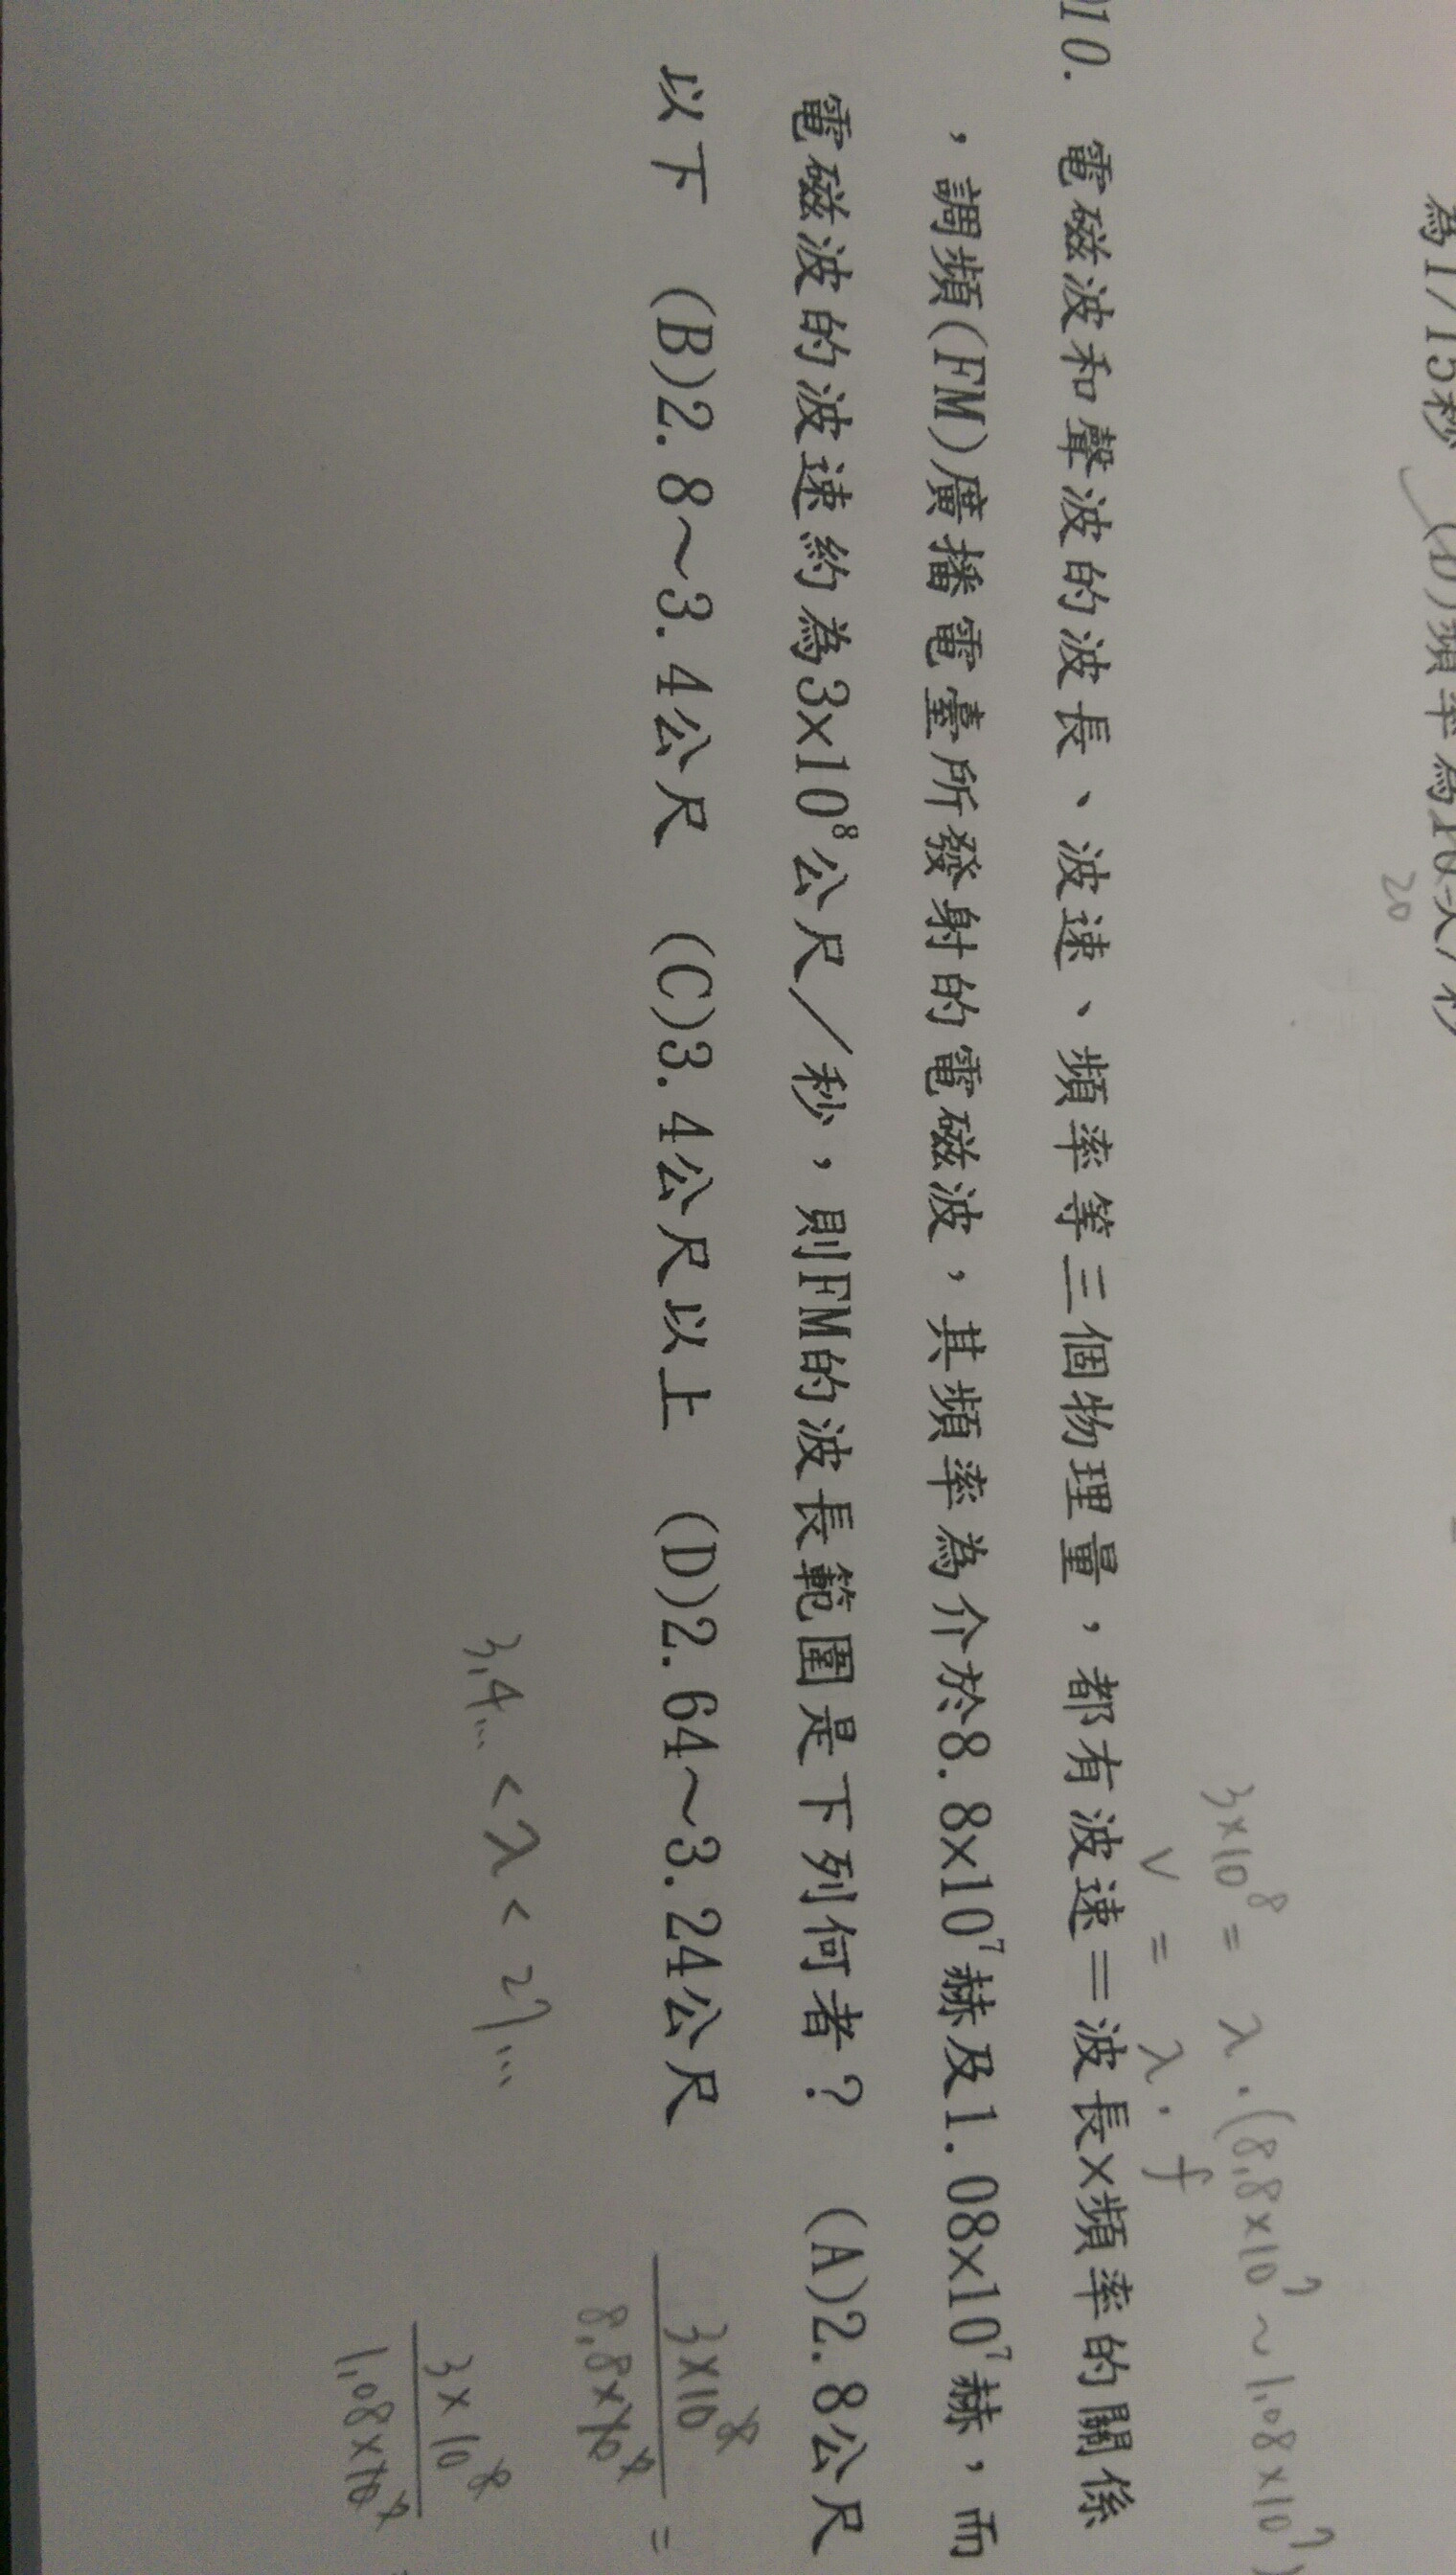 為1/15秒 (D)頻率為10次/秒
20
3×10⁸ = λ·(8.8×10⁷~1.08×10⁷)
V = λ·f
10. 電磁波和聲波的波長、波速、頻率等三個物理量，都有波速＝波長×頻率的關係
，調頻(FM)廣播電臺所發射的電磁波，其頻率為介於8.8×10⁷赫及1.08×10⁷赫，而
電磁波的波速約為3×10⁸公尺／秒，則FM的波長範圍是下列何者？ (A)2.8公尺
以下 (B)2.8～3.4公尺 (C)3.4公尺以上 (D)2.64～3.24公尺
3×10⁸
8.8×10⁷ =
3.4... < λ < 27...
3×10⁸
1.08×10⁷